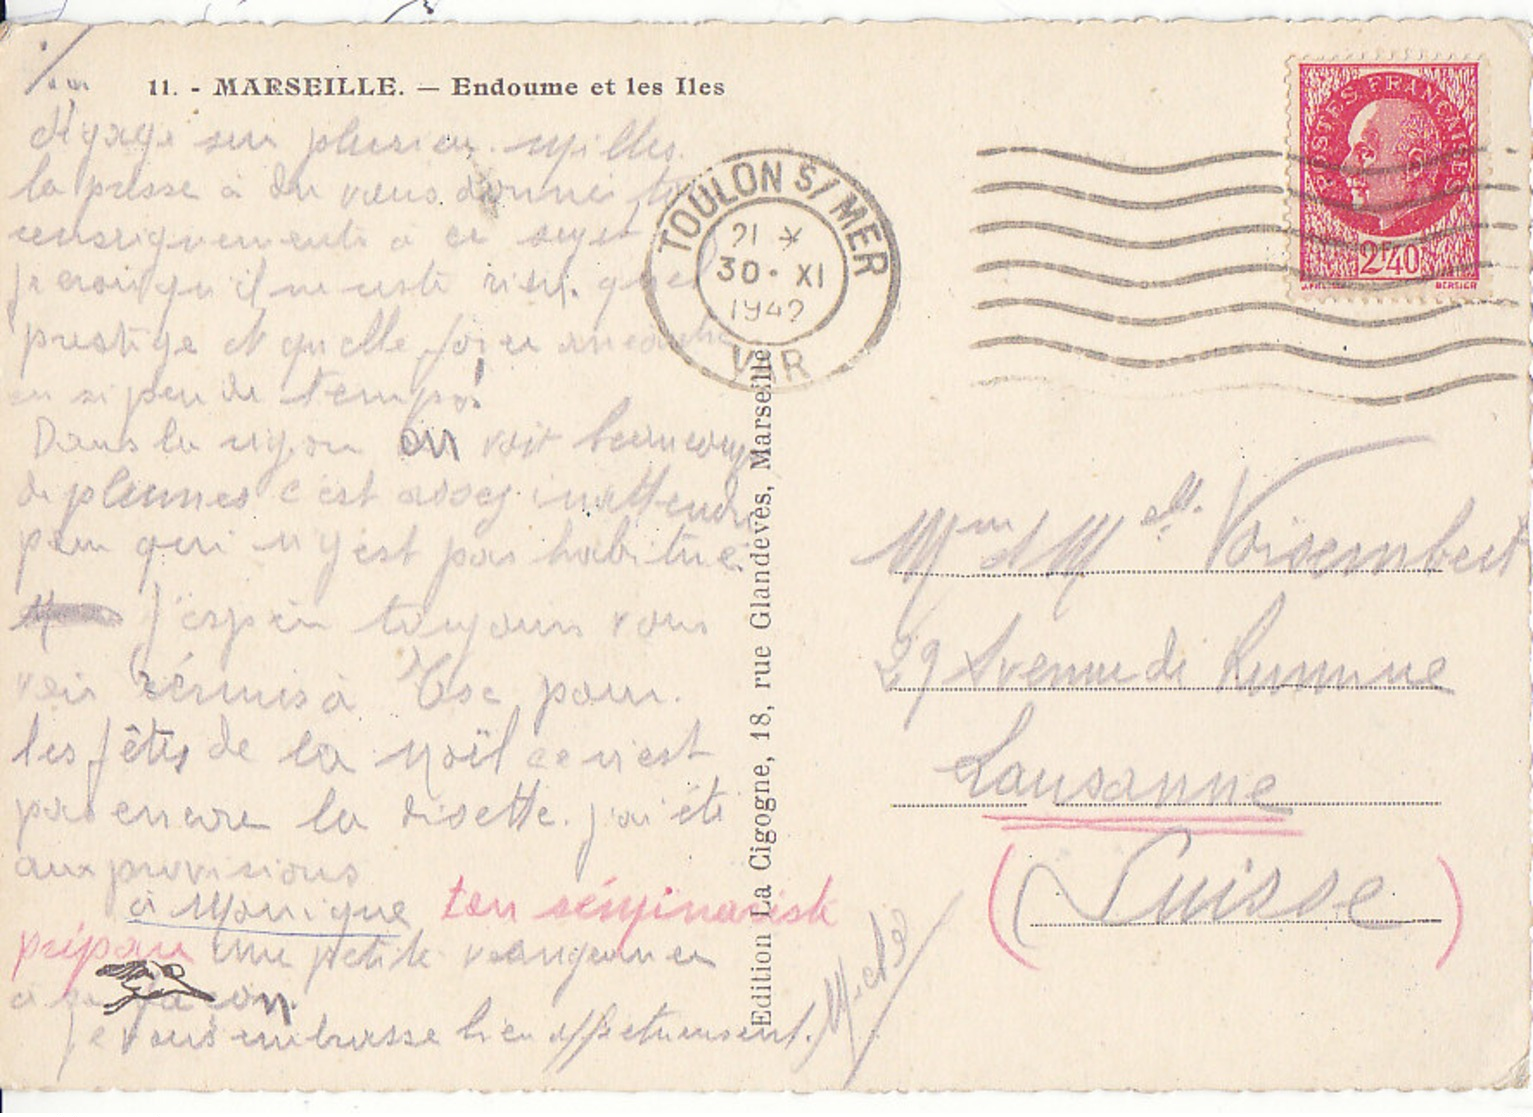 11. - MARSEILLE. — Endoume et les Iles
sur plusieurs milles.
la presse a dû vous donner
renseignements à ce sujet
Je crois qu'il ne reste rien. que
prestige et quelle
en si peu de temps!
Dans la région on voit beaucoup
de plumes c'est assez inattendu
pour qui n'y est pas habitué.
J'espère toujours vous
voir réunis à pour.
les fêtes de la Noël ce n'est
pas encore la disette. j'ai été
aux provisions
à Monique ton séminariste
prépare une petite vengeance
à sa façon.
Je vous embrasse bien affectueusement.
Edition La Cigogne, 18, rue Glandevès, Marseille
TOULON S/MER
21 *
30 · XI
1942
VAR
POSTES FRANÇAISES
2F40
BERSIER
Mme et Melle
29 Avenue de Rumine
Lausanne
(Suisse)